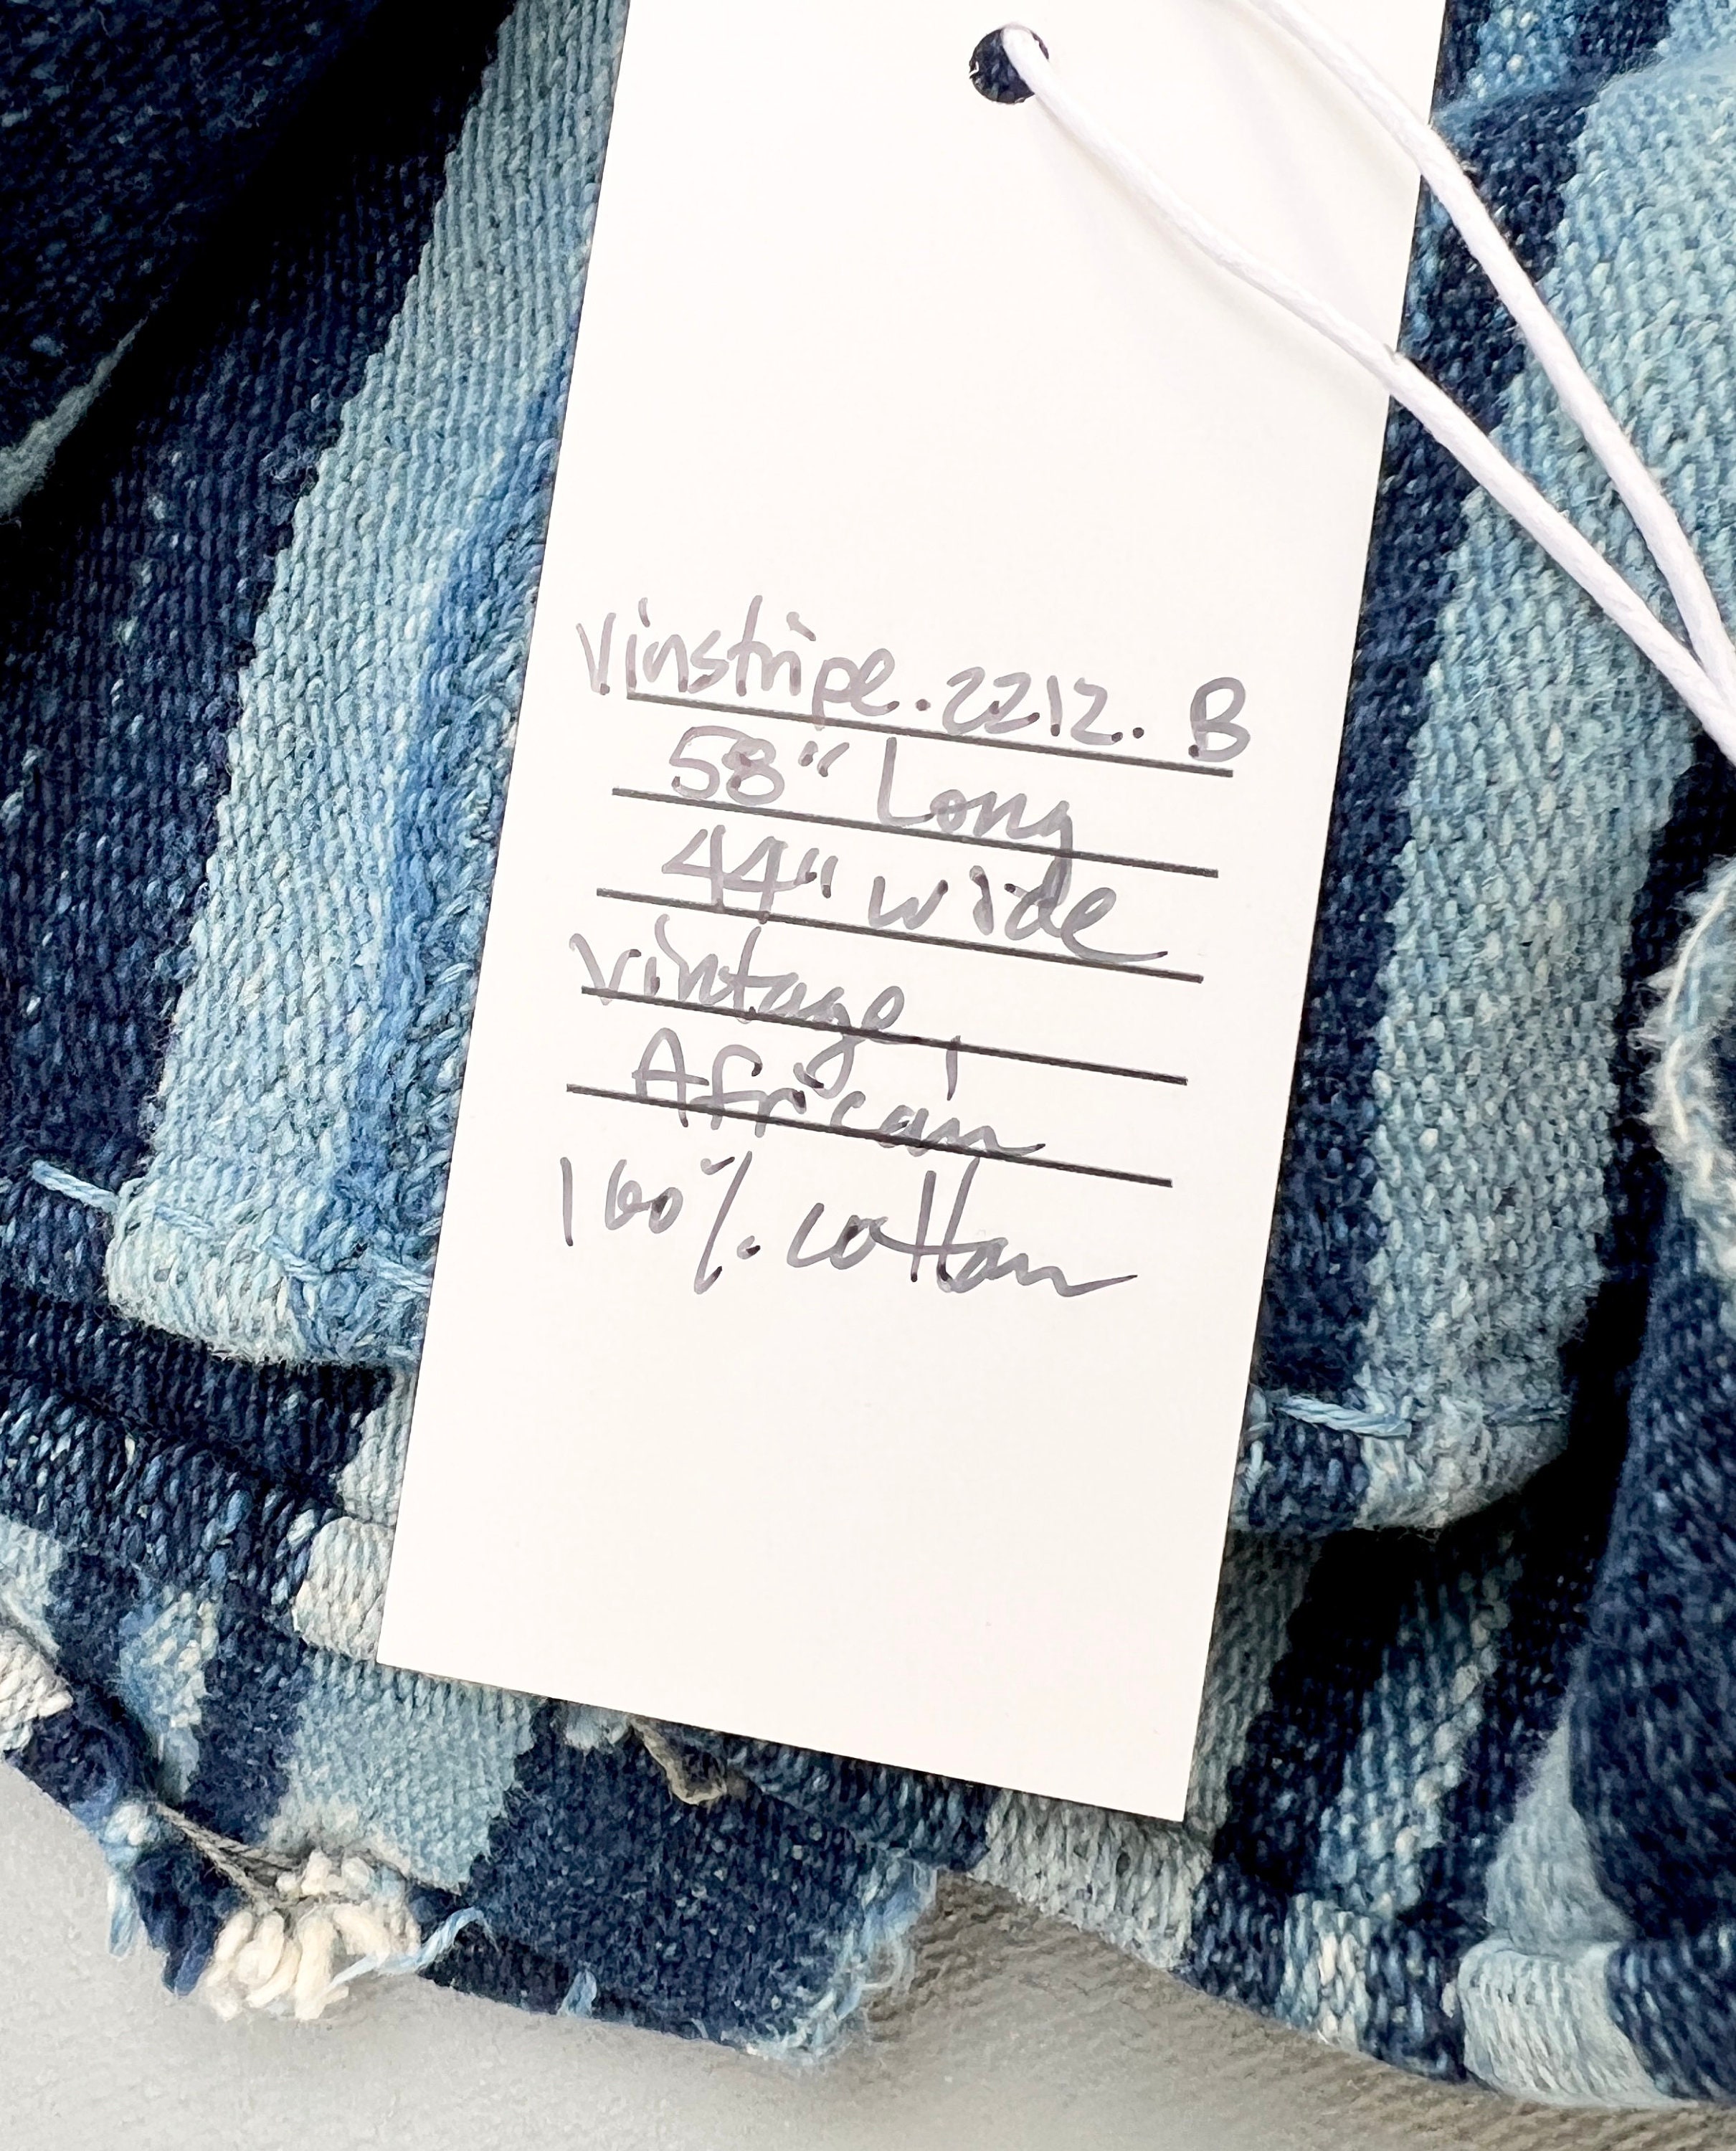 Vinstripe.2212.B
58" Long
44" wide
Vintage,
African
100%. cotton